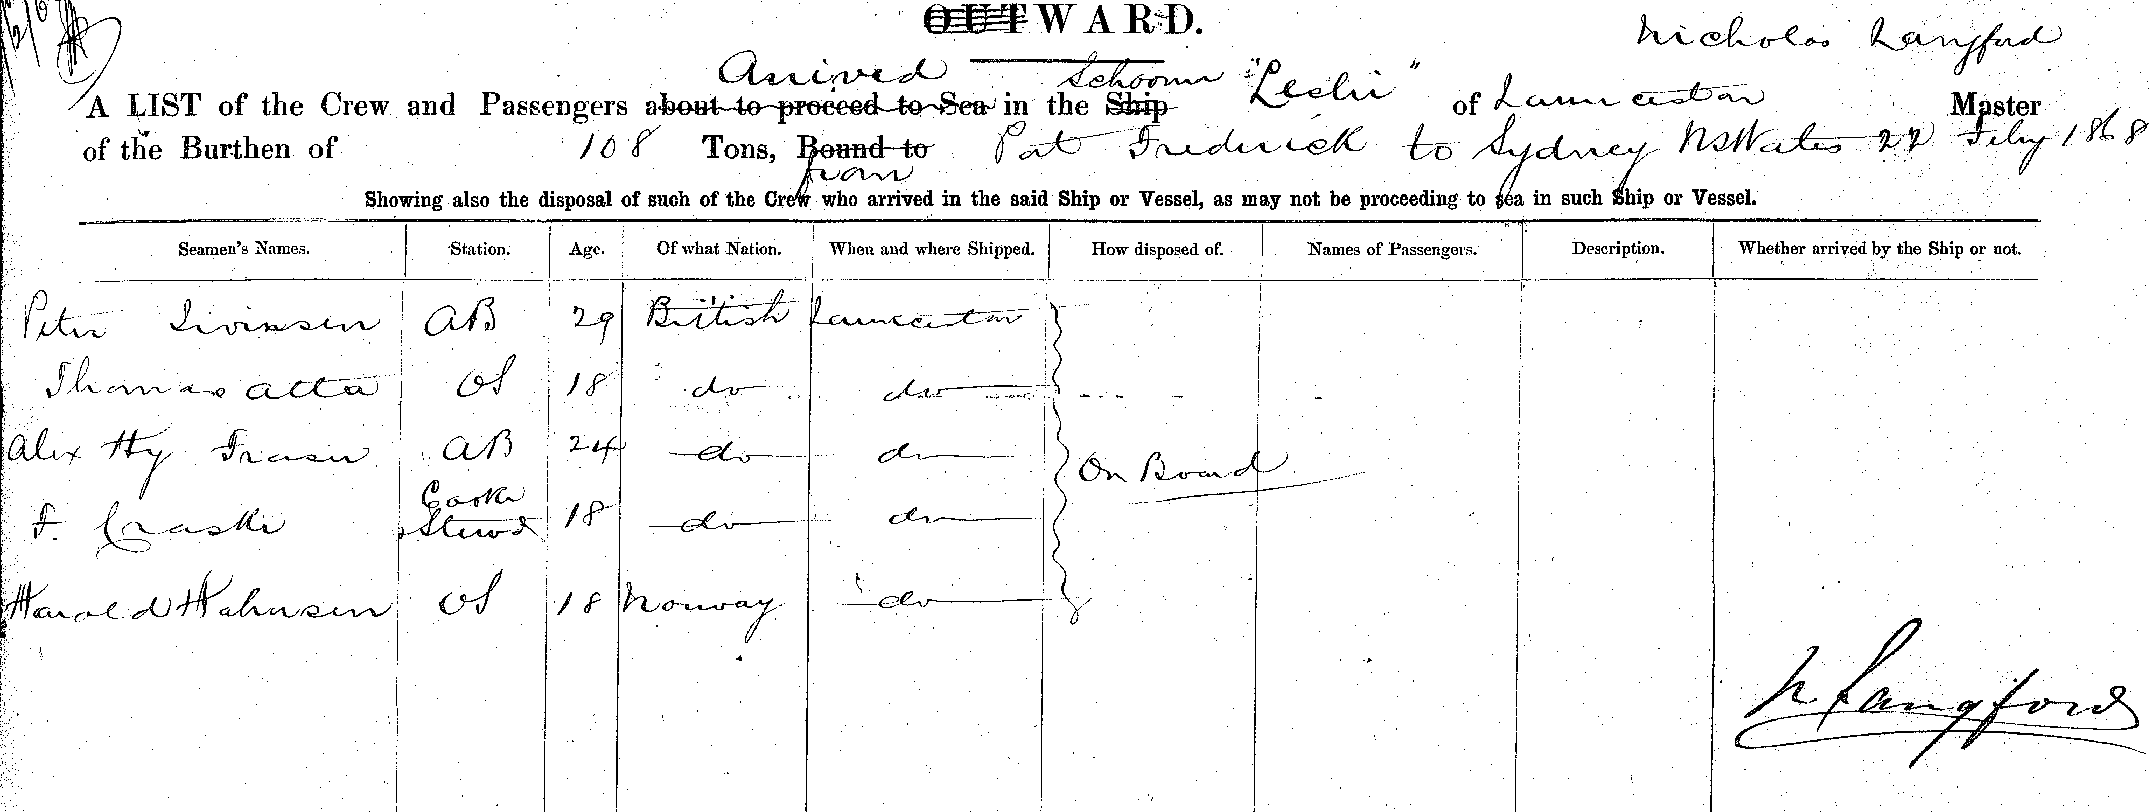 OUTWARD.
Nicholas Langford
Arrived Schooner "Leslie"
A LIST of the Crew and Passengers about to proceed to Sea in the Ship of Launceston Master
of the Burthen of 108 Tons, Bound to Port Frederick to Sydney NSWales 22 Feby 1868
from
Showing also the disposal of such of the Crew who arrived in the said Ship or Vessel, as may not be proceeding to sea in such Ship or Vessel.
Seamen's Names. Station. Age. Of what Nation. When and where Shipped. How disposed of. Names of Passengers. Description. Whether arrived by the Ship or not.
Peter AB 29 British Launceston
Thomas Atta OS 18 do do
Alex Hy Fraser AB 24 do do
On Board
F. Craske Cook & Stewd 18 do do
Harold OS 18 Norway do
N Langford